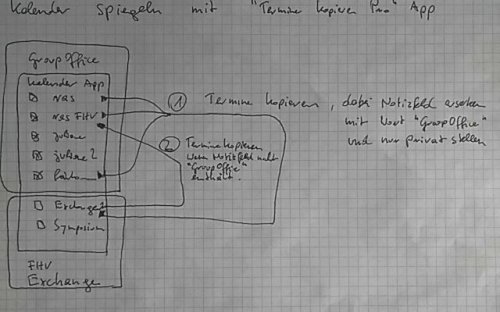 Kalender spiegeln mit "Termine kopieren Pro" App
GroupOffice
Kalender App
nas
nas FHV
① Termine kopieren, dabei Notizfeld ersetzen
mit Wort "GroupOffice"
und nur privat stellen
② Termine kopieren
wenn Notizfeld nicht
"GroupOffice"
enthält.
Exchange
Symposium
FHV
Exchange